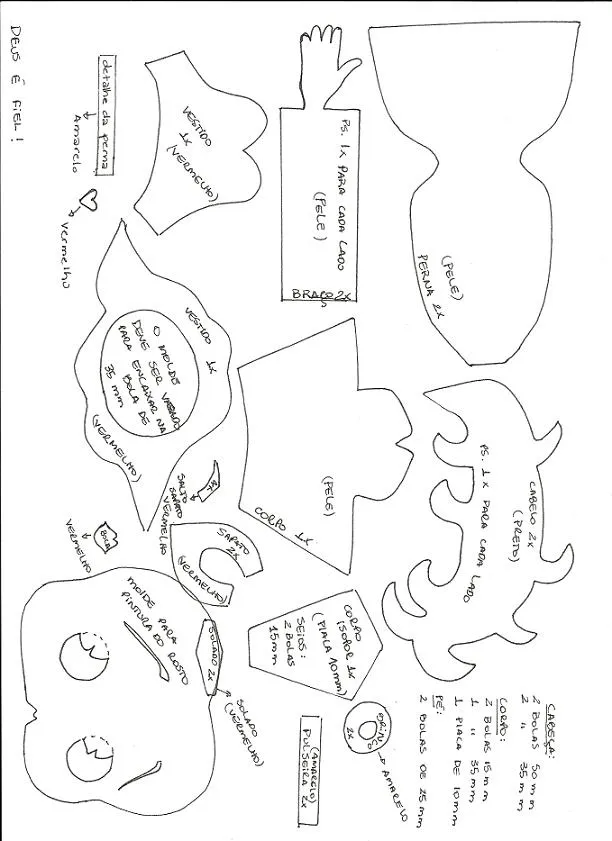 DEUS É FIEL!
detalhe da perna
Amarelo
vermelho
VESTIDO
1X
(VERMELHO)
PS. 1X PARA CADA LADO
(PELE)
BRAÇO 2X
(PELE)
PERNA 2X
VESTIDO 1X
O MOLDE
DEVE SER VAZADO
PARA ENCAIXAR NA
BOLA DE
35 mm
(VERMELHO)
(PELE)
CORPO 1X
CABELO 2X
(PRETO)
PS. 1X PARA CADA LADO
SALTO
SAPATO
VERMELHO
SAPATO
2X
(VERMELHO)
BOCA
VERMELHO
MOLDE PARA
PINTURA DO ROSTO
SOLADO 2X
SOLADO
(VERMELHO)
CORPO
ISOPOR 1X
(PLACA 10mm)
SEIOS:
2 BOLAS
15mm
BRINCO
2X
AMARELO
(AMARELO)
PULSEIRA 2X
CABEÇA:
2 BOLAS 50mm
2 " 35mm
CORPO:
2 BOLAS 15mm
1 " 35mm
1 PLACA DE 10mm
PÉ:
2 BOLAS DE 25mm